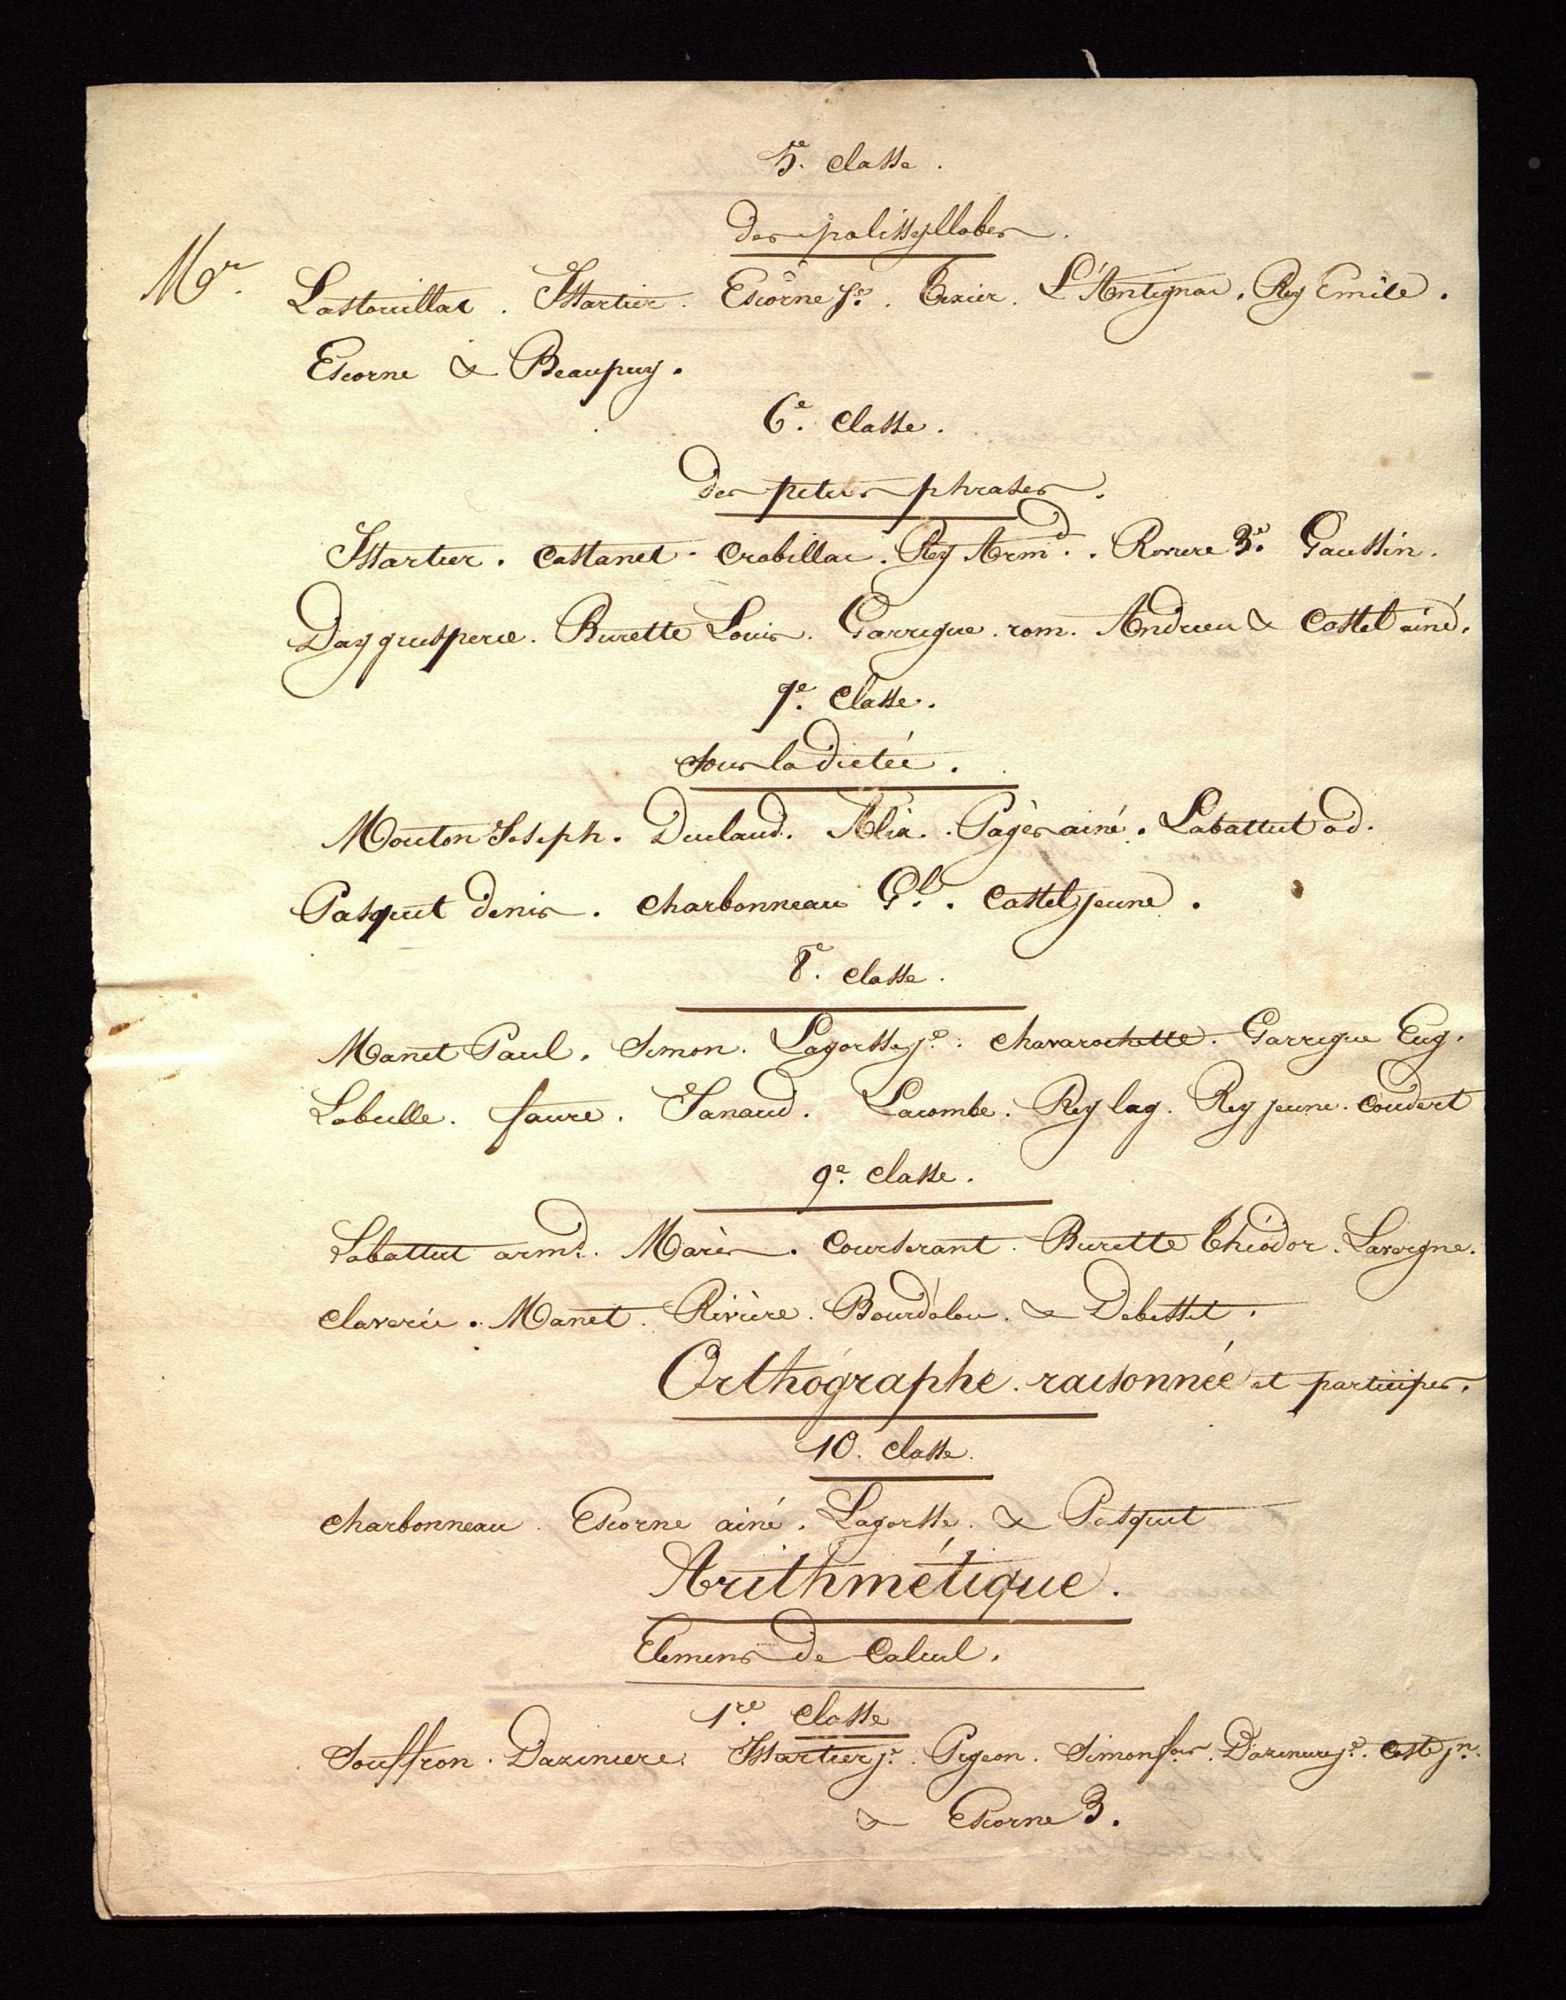 5.e Classe.
des polissyllabes.
Mr. Lastouillac. Issartier. Escorne Je. Texier. L'Antignac. Rey Emile.
Escorne & Beaupuy.
6.e Classe.
des petites phrases.
Issartier. Castanet. Crabillac. Rey Armd. Roviere 3e. Gaussin.
Burette Louis. Garrigue rom. Andrieu & Castel ainé.
7.e Classe.
Sous la dictée.
Mouton Joseph. Duclaud. Alix. Pagès ainé. Labattut ad.
Pasquet denis. Charbonneau Gl. Castel jeune.
8.e Classe.
Manet Paul. Simon. Lagorsse je. Chavarochette. Garrigue Eug.
Labulle. faure. Janaud. Lacombe. Rey lag. Rey jeune. Coudert
9.e Classe.
Labattut armd. Marès. Courserant. Burette Théodor. Lavergne.
Claverie. Manet. Rivière. Bourdelou. & Debesset.
Orthographe raisonnée et participes.
10. Classe.
Charbonneau. Escorne ainé. Lagorsse. & Pasquet
Arithmétique.
Elemens de Calcul.
1.re Classe
Souffron. Dazeniere. Issartier je. Pigeon. Simon fois. Dazeniere je. Caste jn.
& Escorne 3.